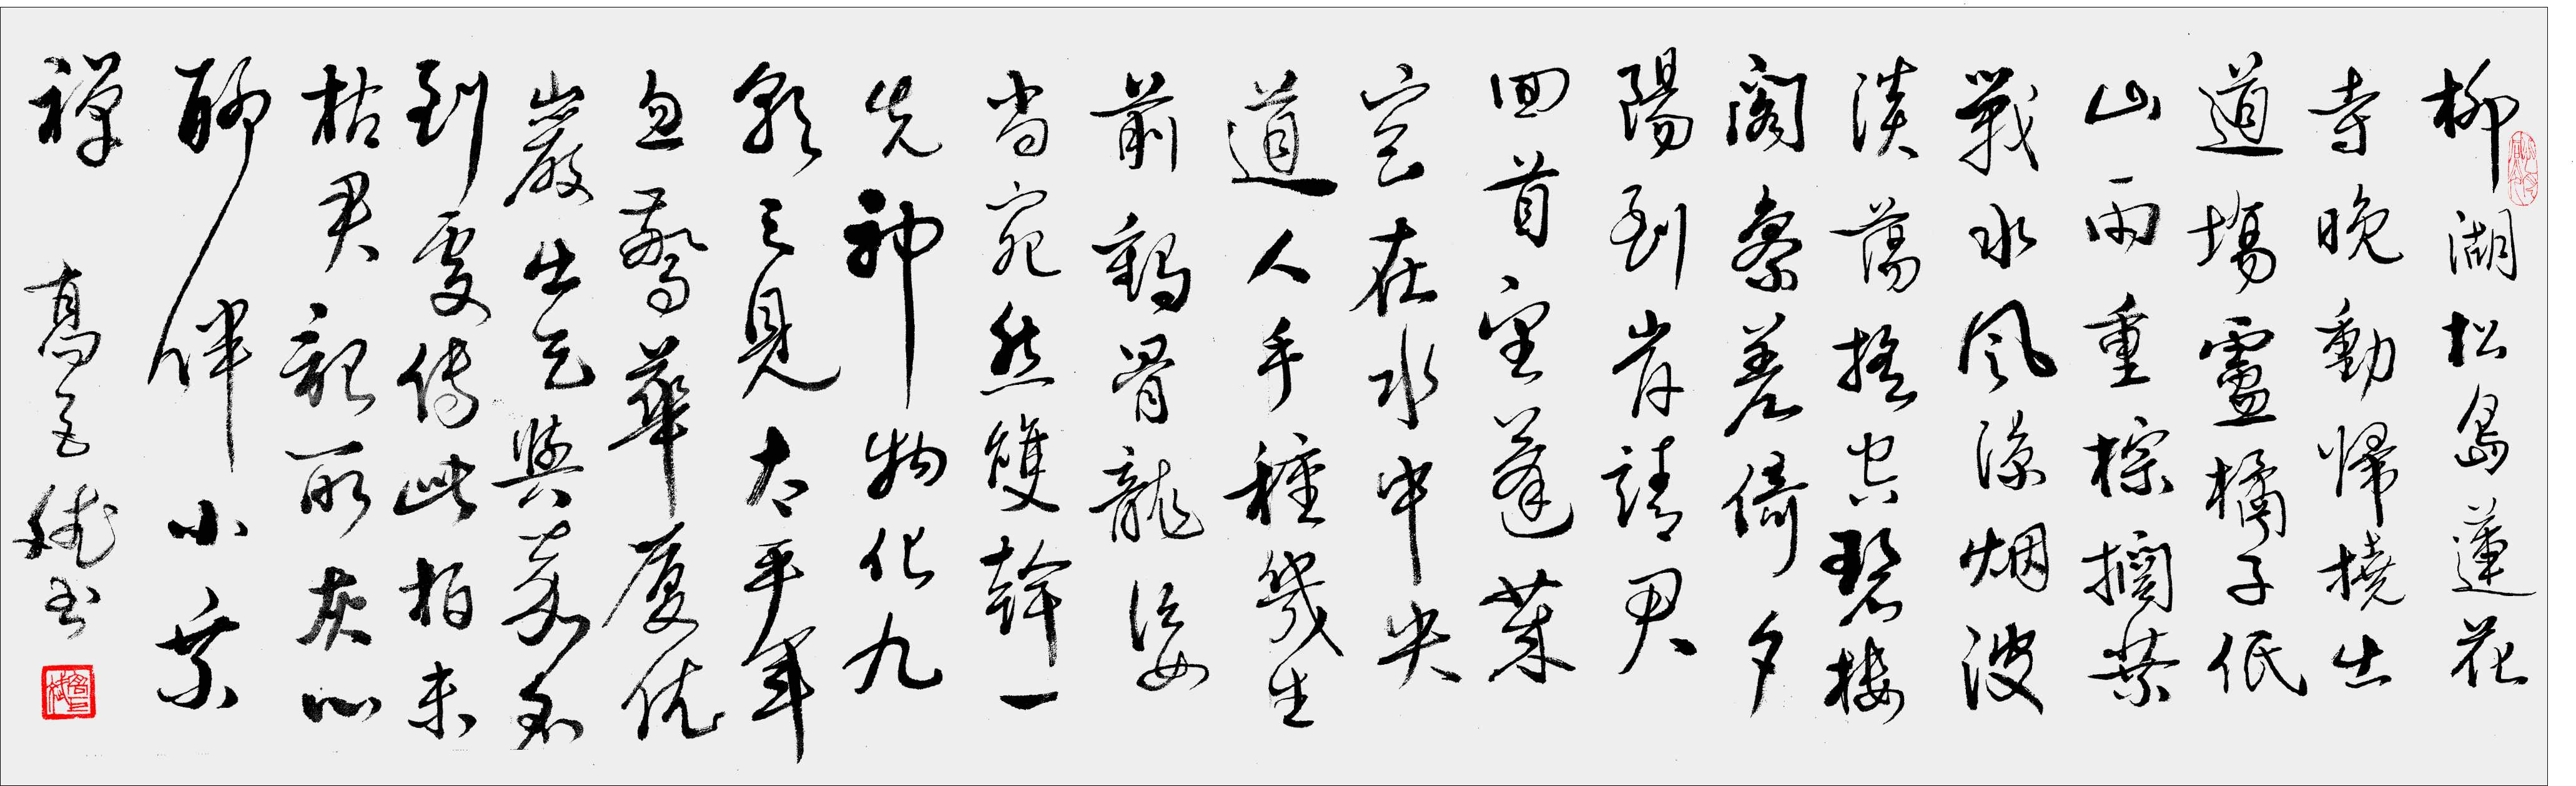 柳湖松島蓮花
寺晚動帰橈出
道場盧橘子低
山雨重棕櫚葉
戰水風涼烟波
淡蕩搖空碧樓
閣參差倚夕
陽到岸請君
回首望蓬萊
宮在水中央
道人手種幾生
前鶴骨龍姿
尚宛然雙幹一
先神物化九
朝三見太平年
忽驚華廈依
巖出乞與嘉名
到處傳此柏未
枯君記取灰心
聊伴小乘
禪
書